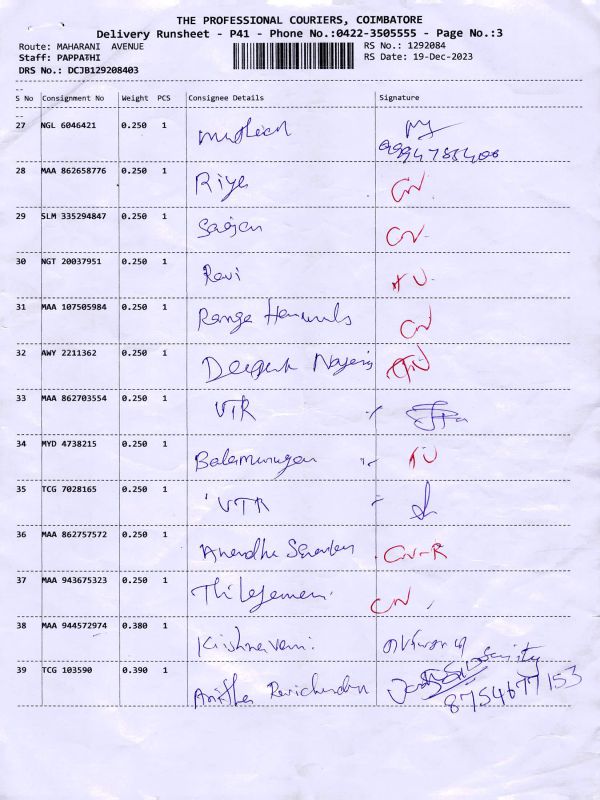 THE PROFESSIONAL COURIERS, COIMBATORE
Delivery Runsheet - P41 - Phone No.:0422-3505555 - Page No.:3
Route: MAHARANI AVENUE RS No.: 1292084
Staff: PAPPATHI RS Date: 19-Dec-2023
DRS No.: DCJB129208403
--
S No Consignment No Weight PCS Consignee Details Signature
--
27 NGL 6046421 0.250 1
28 MAA 862658776 0.250 1 Riya CN
29 SLM 335294847 0.250 1 Sajan CN
30 NGT 20037951 0.250 1 Ravi
31 MAA 107505984 0.250 1 Range CN
32 AWY 2211362 0.250 1 Deepak
33 MAA 862703554 0.250 1 VTR
34 MYD 4738215 0.250 1 Balamurugan
35 TCG 7028165 0.250 1 VTR
36 MAA 862757572 0.250 1 CN-R
37 MAA 943675323 0.250 1 CN
38 MAA 944572974 0.380 1 Krishnaveni
39 TCG 103590 0.390 1 Anitha Ravichandran Security
8754677153